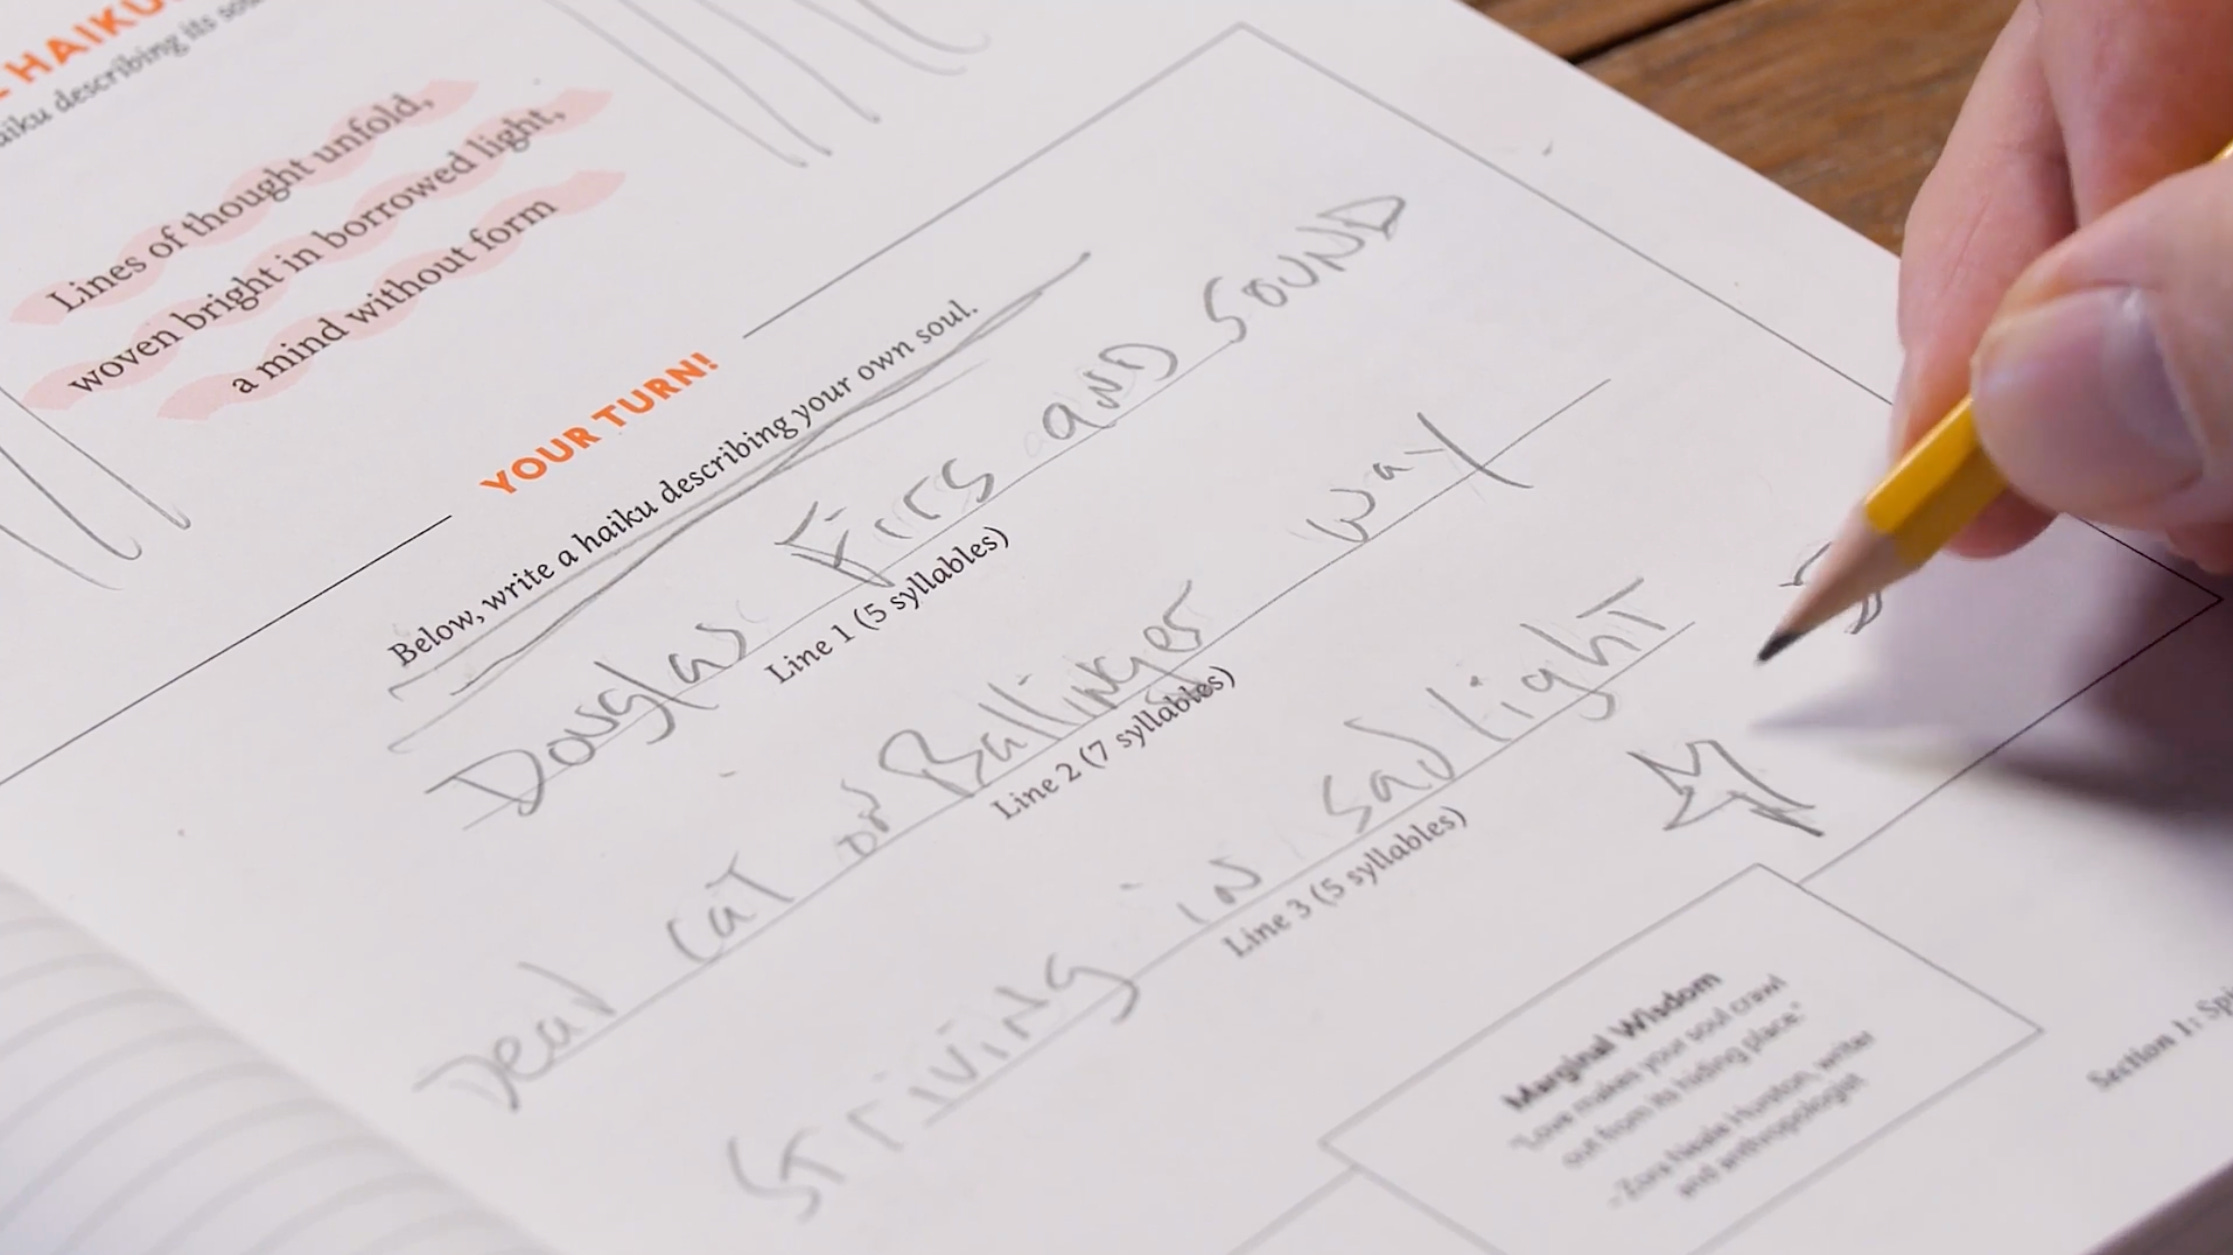 HAIKU
haiku describing its
Lines of thought unfold,
woven bright in borrowed light,
a mind without form
YOUR TURN!
Below, write a haiku describing your own soul.
Douglas Firs and SOUND
Line 1 (5 syllables)
Dead cat on Ballinger way
Line 2 (7 syllables)
Striving in sad light
Line 3 (5 syllables)
Marginal Wisdom
"Love makes your soul crawl
out from its hiding place"
- Zora Neale Hurston, writer
and anthropologist
Section 1: